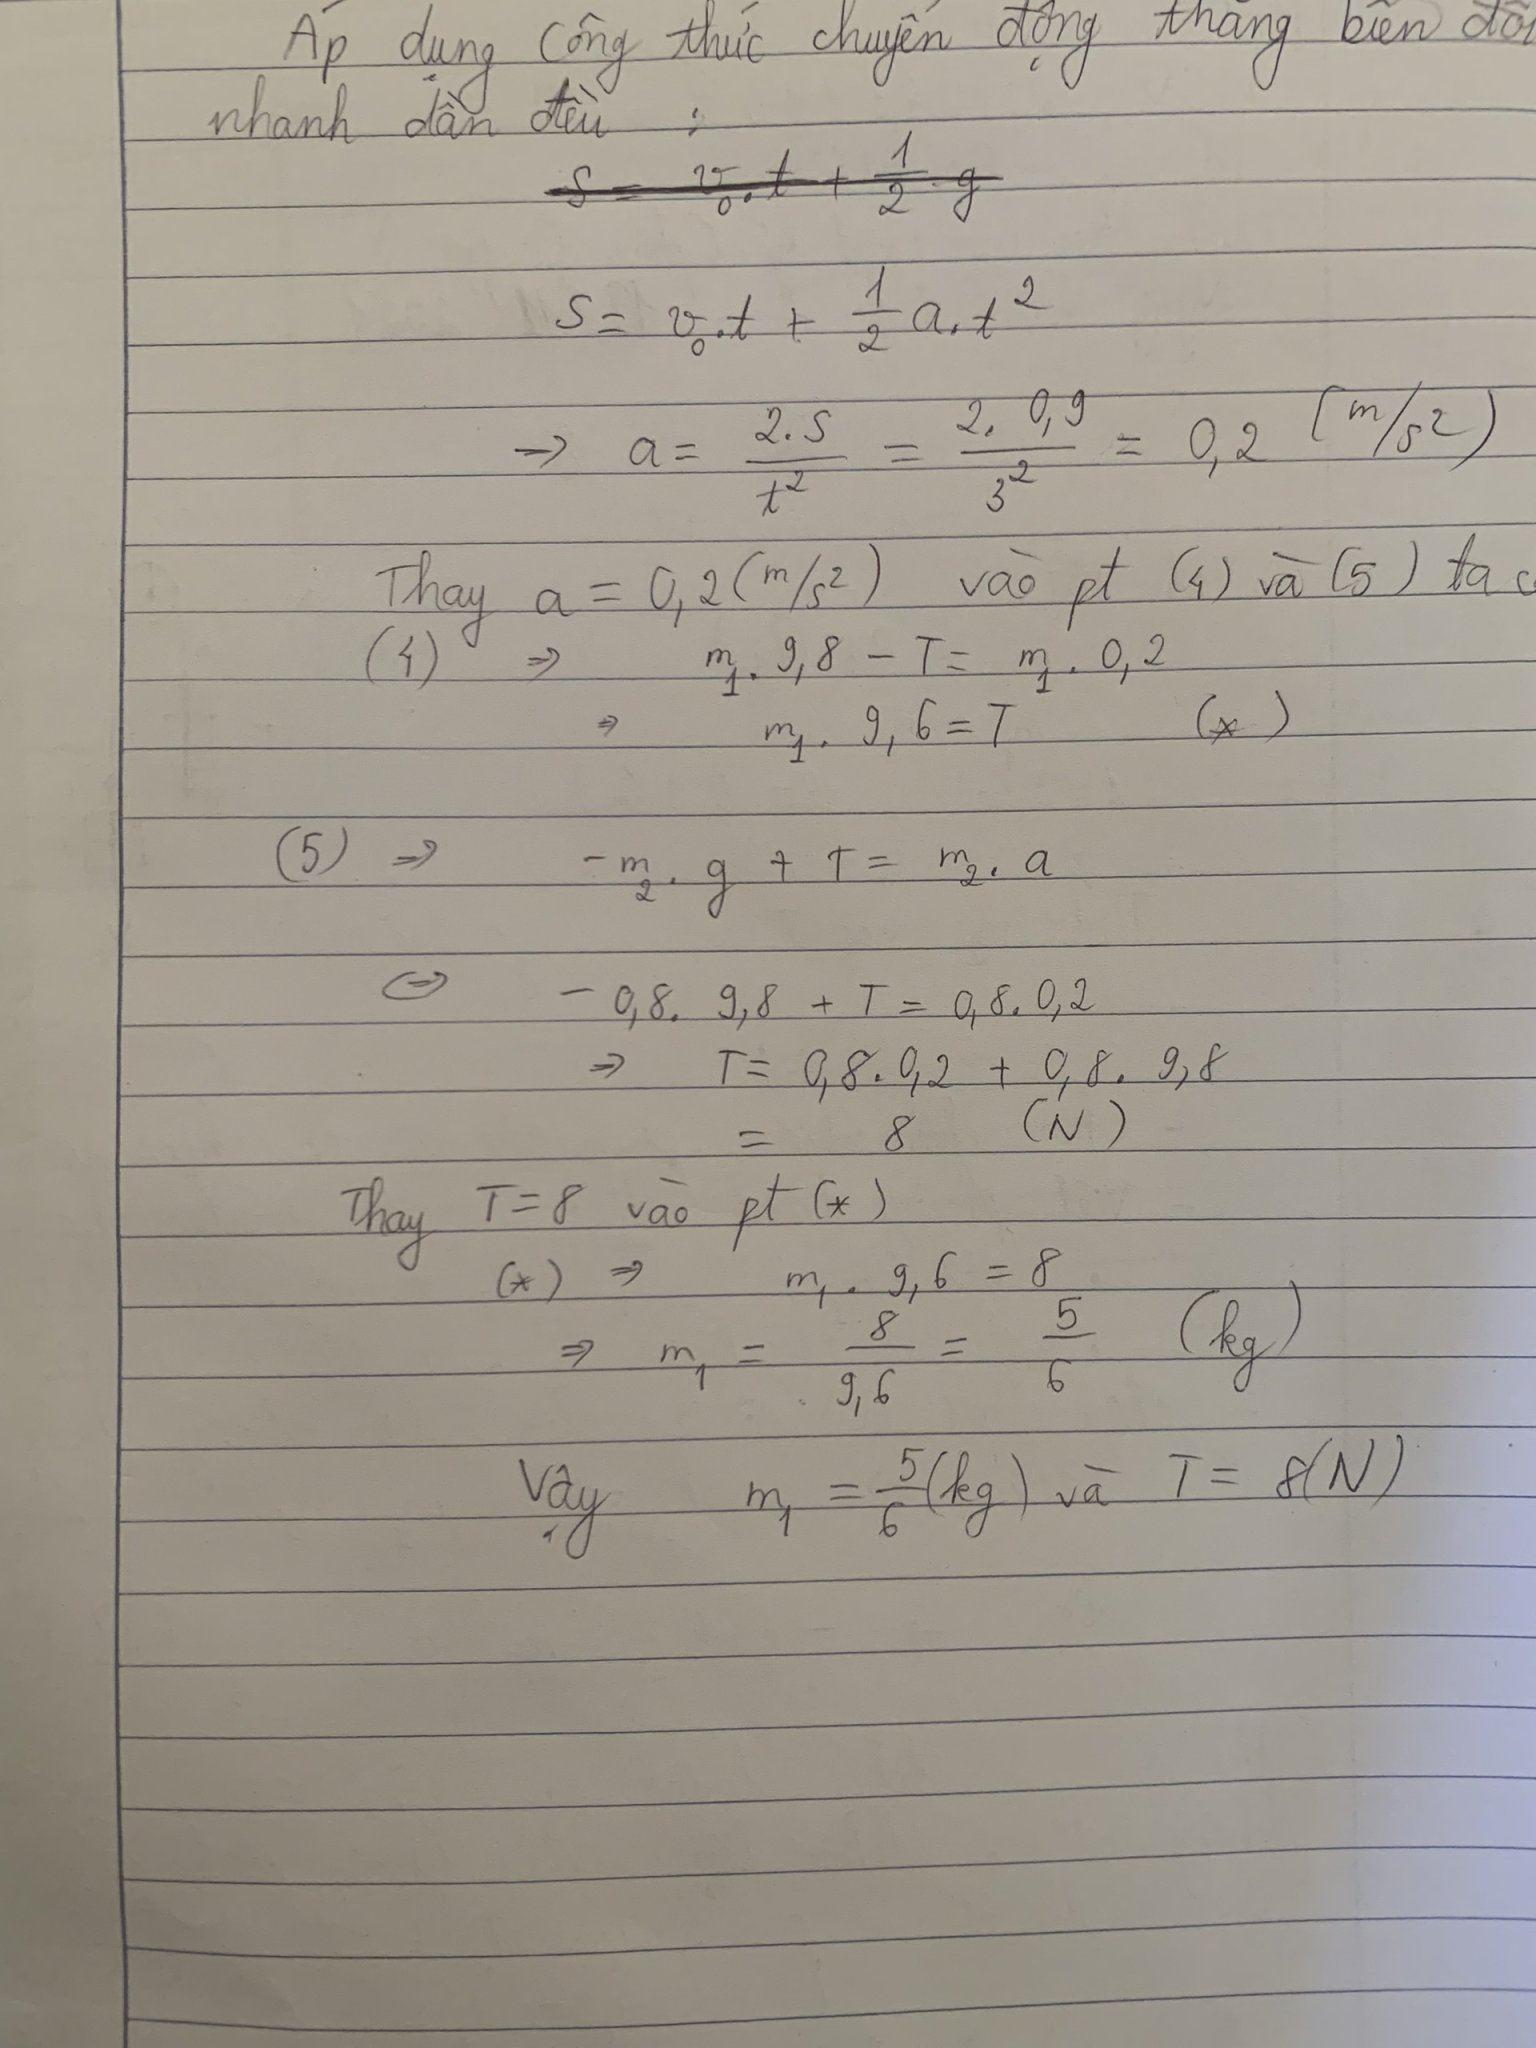 Áp dụng công thức chuyển động thẳng biến đổi
nhanh dần đều :
S = v₀.t + 1/2 . g
S = v₀.t + 1/2 a.t²
→ a = 2.S/t² = 2. 0,9/3² = 0,2 (m/s²)
Thay a = 0,2 (m/s²) vào pt (4) và (5) ta
(4) ⇒ m₁. 9,8 - T = m₁. 0,2
⇒ m₁. 9,6 = T (*)
(5) ⇒ -m₂. g + T = m₂. a
⇔ - 0,8. 9,8 + T = 0,8.0,2
⇒ T = 0,8.0,2 + 0,8. 9,8
= 8 (N)
Thay T = 8 vào pt (*)
(*) ⇒ m₁. 9,6 = 8
⇒ m₁ = 8/9,6 = 5/6 (kg)
Vậy m₁ = 5/6 (kg) và T = 8(N)